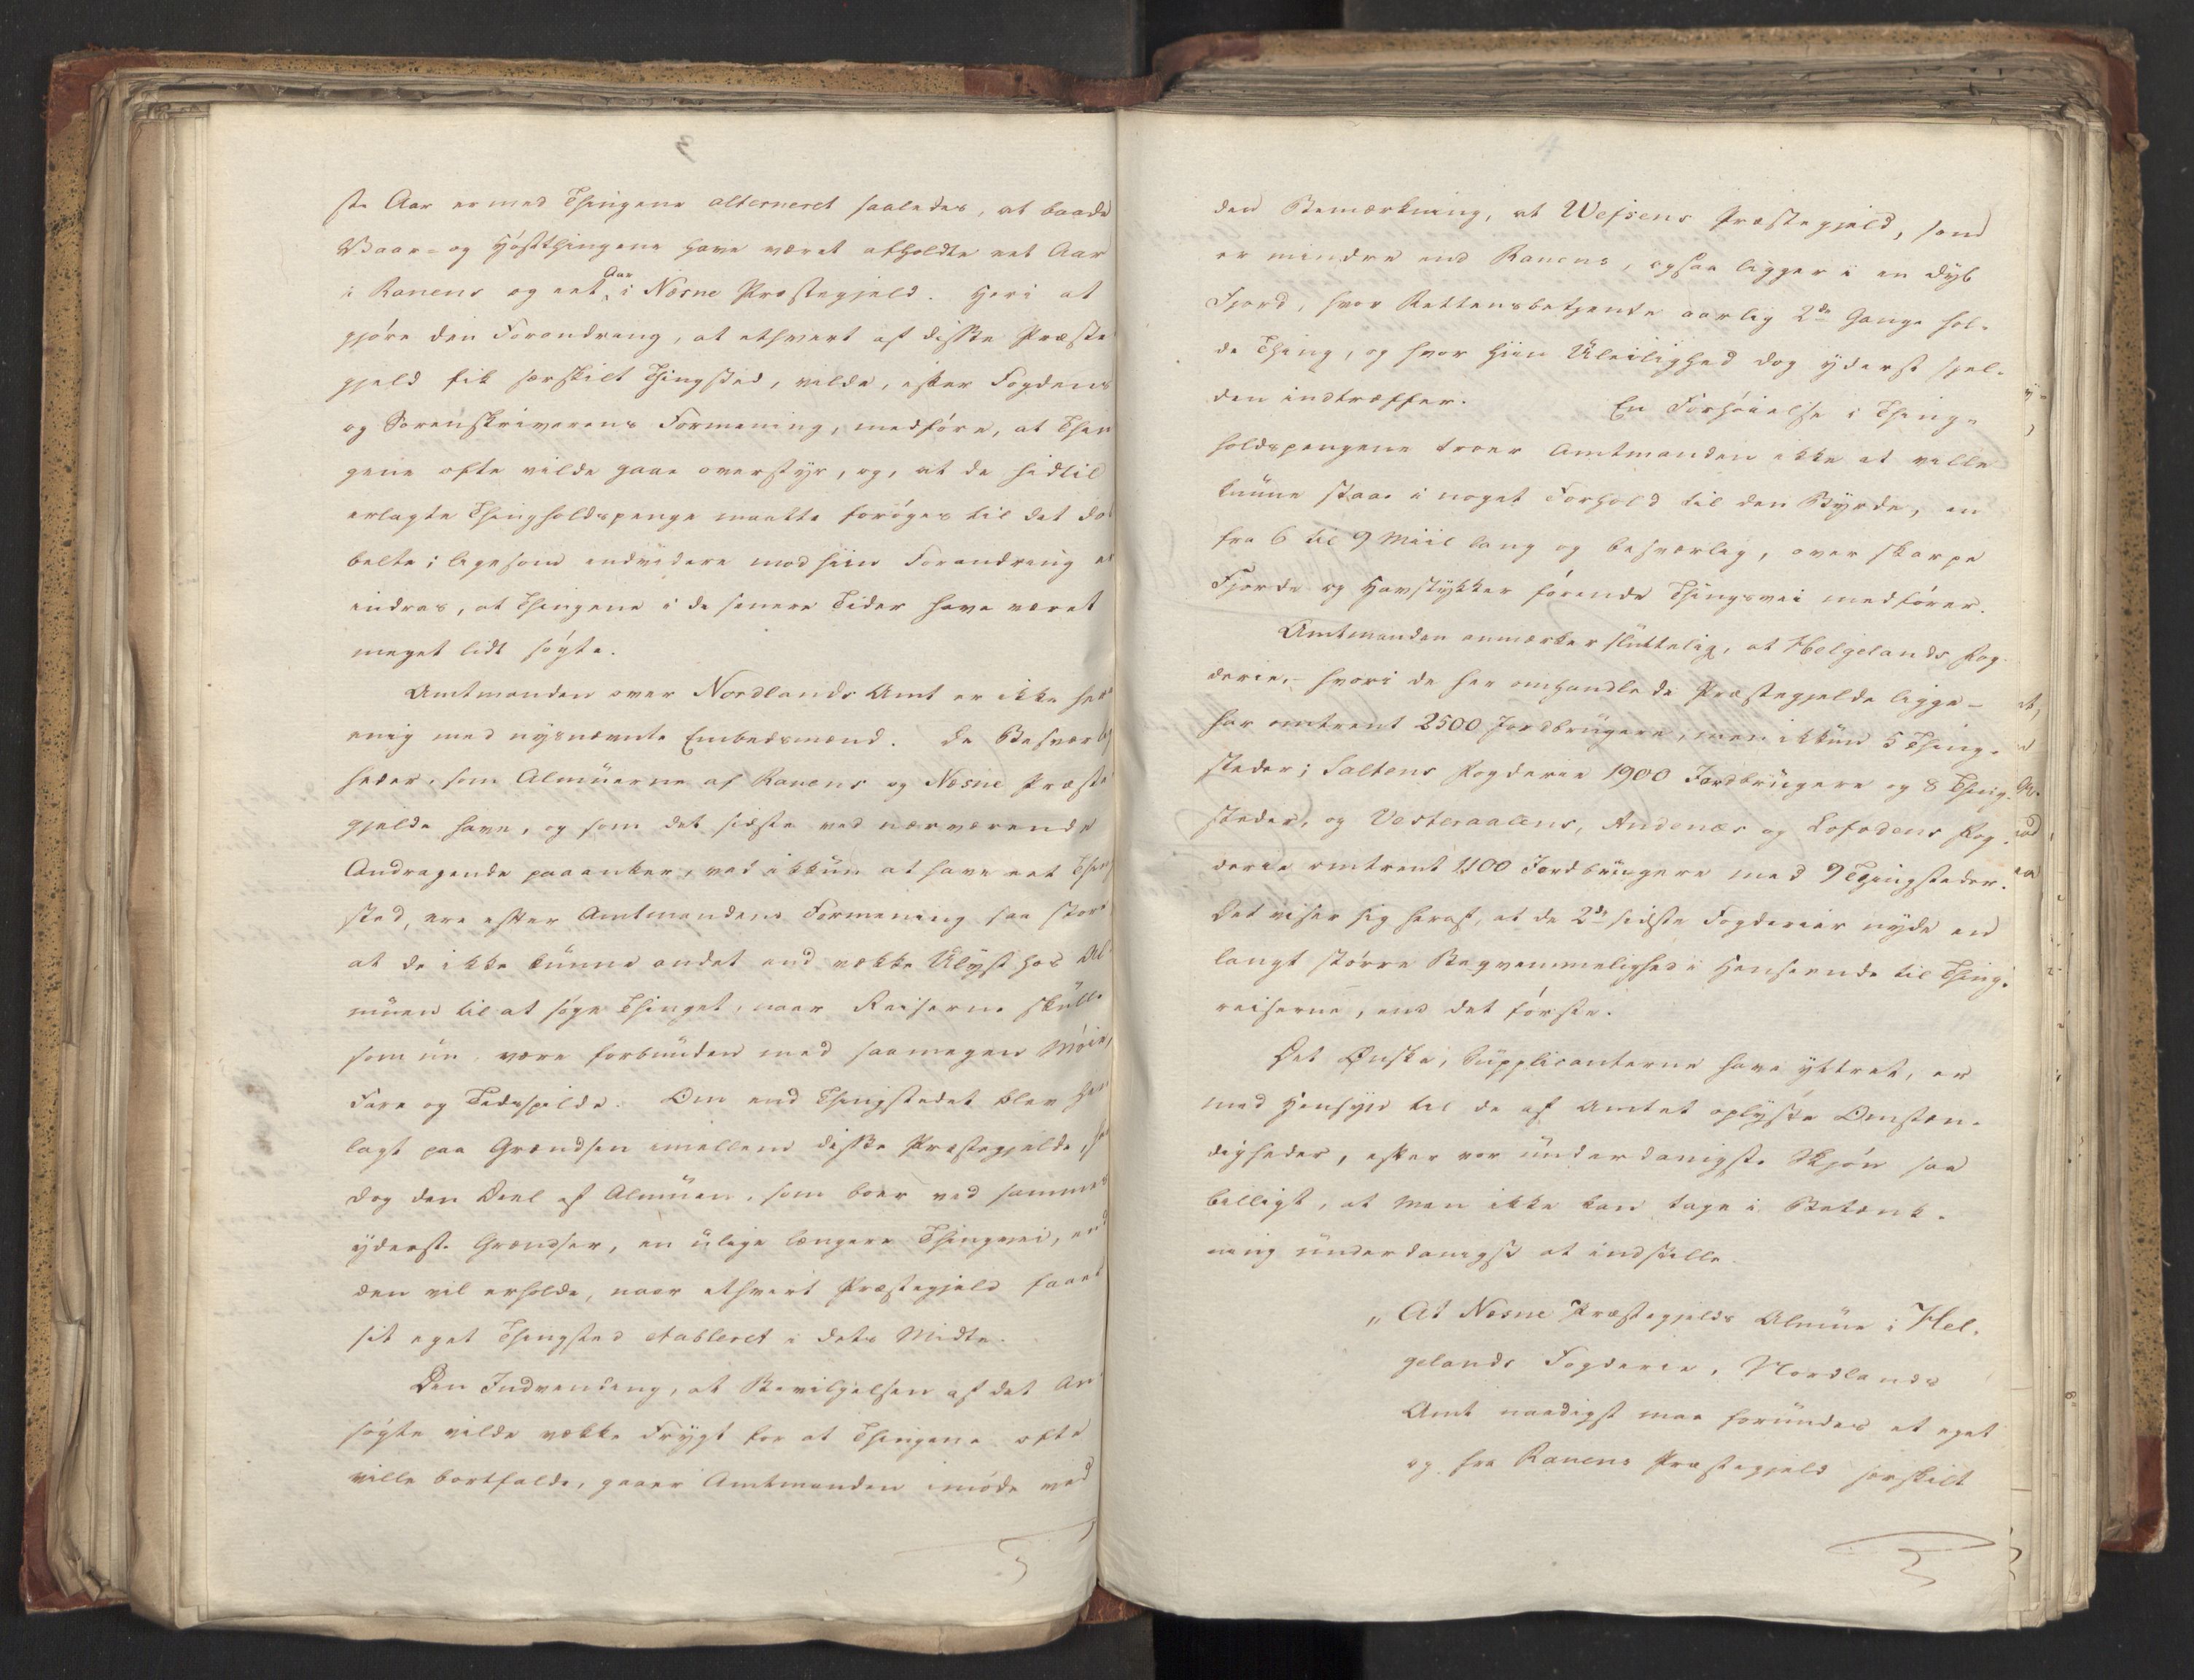 3
ste Aar er med Thingene alterneret saaledes, at baade
Vaar- og Høstthingene have været afholdte eet Aar
i Ranens og eet Aar i Næsne Præstegjeld. Heri at
gjøre den Forandring, at ethvert af disse Præste
gjeld fik særskilt Thingsted, vilde, efter Fogdens
og Sorenskriverens Formening, medføre, at Thin
gene ofte vilde gaae overstyr, og, at de hidtil
erlagte Thingholdspenge maatte forøges til det do
belte; ligesom endvidere mod hiin Forandring er
indras, at Thingene i de senere Tider have været
meget lidt søgte.
Amtmanden over Nordlands Amt er ikke her
enig med nysnævnte Embedsmænd. De Besværlig
heder, som Almuerne af Ranens og Næsne Præste
gjelde have, og som det sidste ved nærværende
Andragende paaanker, ved ikkun at have eet Thing
sted, ere efter Amtmandens Formening saa store
at de ikke kunne andet end vække Ulyst hos Al
muen til at søge Thinget, naar Reiserne skulle
som nu være forbunden med saamegen Møie,
Fare og Tidsspilde. Om end Thingstedet blev hen
lagt paa Grændsen imellem disse Præstegjelde, fik
dog den Deel af Almuen, som boer ved sammes
yderste Grændser, en ulige længere Thingvei, end
den vil erholde, naar ethvert Præstegjeld faaer
sit eget Thingsted etableret i dets Midte.
Den Indvending, at Bevilgelsen af det An
søgte vilde vække Frygt for at Thingene ofte
ville bortfalde, gaaer Amtmanden imøde med
4
den Bemærkning, at Wefsens Præstegjeld, som
er mindre end Ranens, ogsaa ligger i en dyb
Fjord, hvor Rettensbetjente aarlig 2de Gange hol-
de Thing, og hvor hiin Uleilighed dog yderst sjel-
den indtræffer. En Forhøielse i Thing-
holdspengene troer Amtmanden ikke at ville
kunne staae i noget Forhold til den Byrde, en
fra 6 til 9 Miil lang og besværlig, over skarpe
Fjorde og Havstykker førende Thingsvei medfører.
Amtmanden anmærker sluttelig, at Helgelands Fog-
derie, - hvori de her omhandlede Præstegjelde ligge -
har omtrent 2500 Jordbrugere, men ikkun 5 Thing-
steder; Saltens Fogderie 1900 Jordbrugere og 8 Thing-
steder, og Vesteraalens, Andenæs og Lofodens Fog-
derie omtrent 1100 Jordbrugere med 9 Thingsteder.
Det viser sig heraf, at de 2de sidste Fogderier nyde en
langt større Beqvemmelighed i Henseende til Thing-
reiserne, end det første.
Det Ønske, Supplicanterne have yttret, er
med Hensyn til de af Amtet oplyste Omstæn-
digheder, efter vor underdanigste Skjøn saa
billigt, at man ikke kan tage i Betænk-
ning underdanigst at indstille
„At Næsne Præstegjelds Almue i Hel-
gelands Fogderie, Nordlands
Amt naadigst maa forundes et eget
og fra Ranens Præstegjeld særskilt